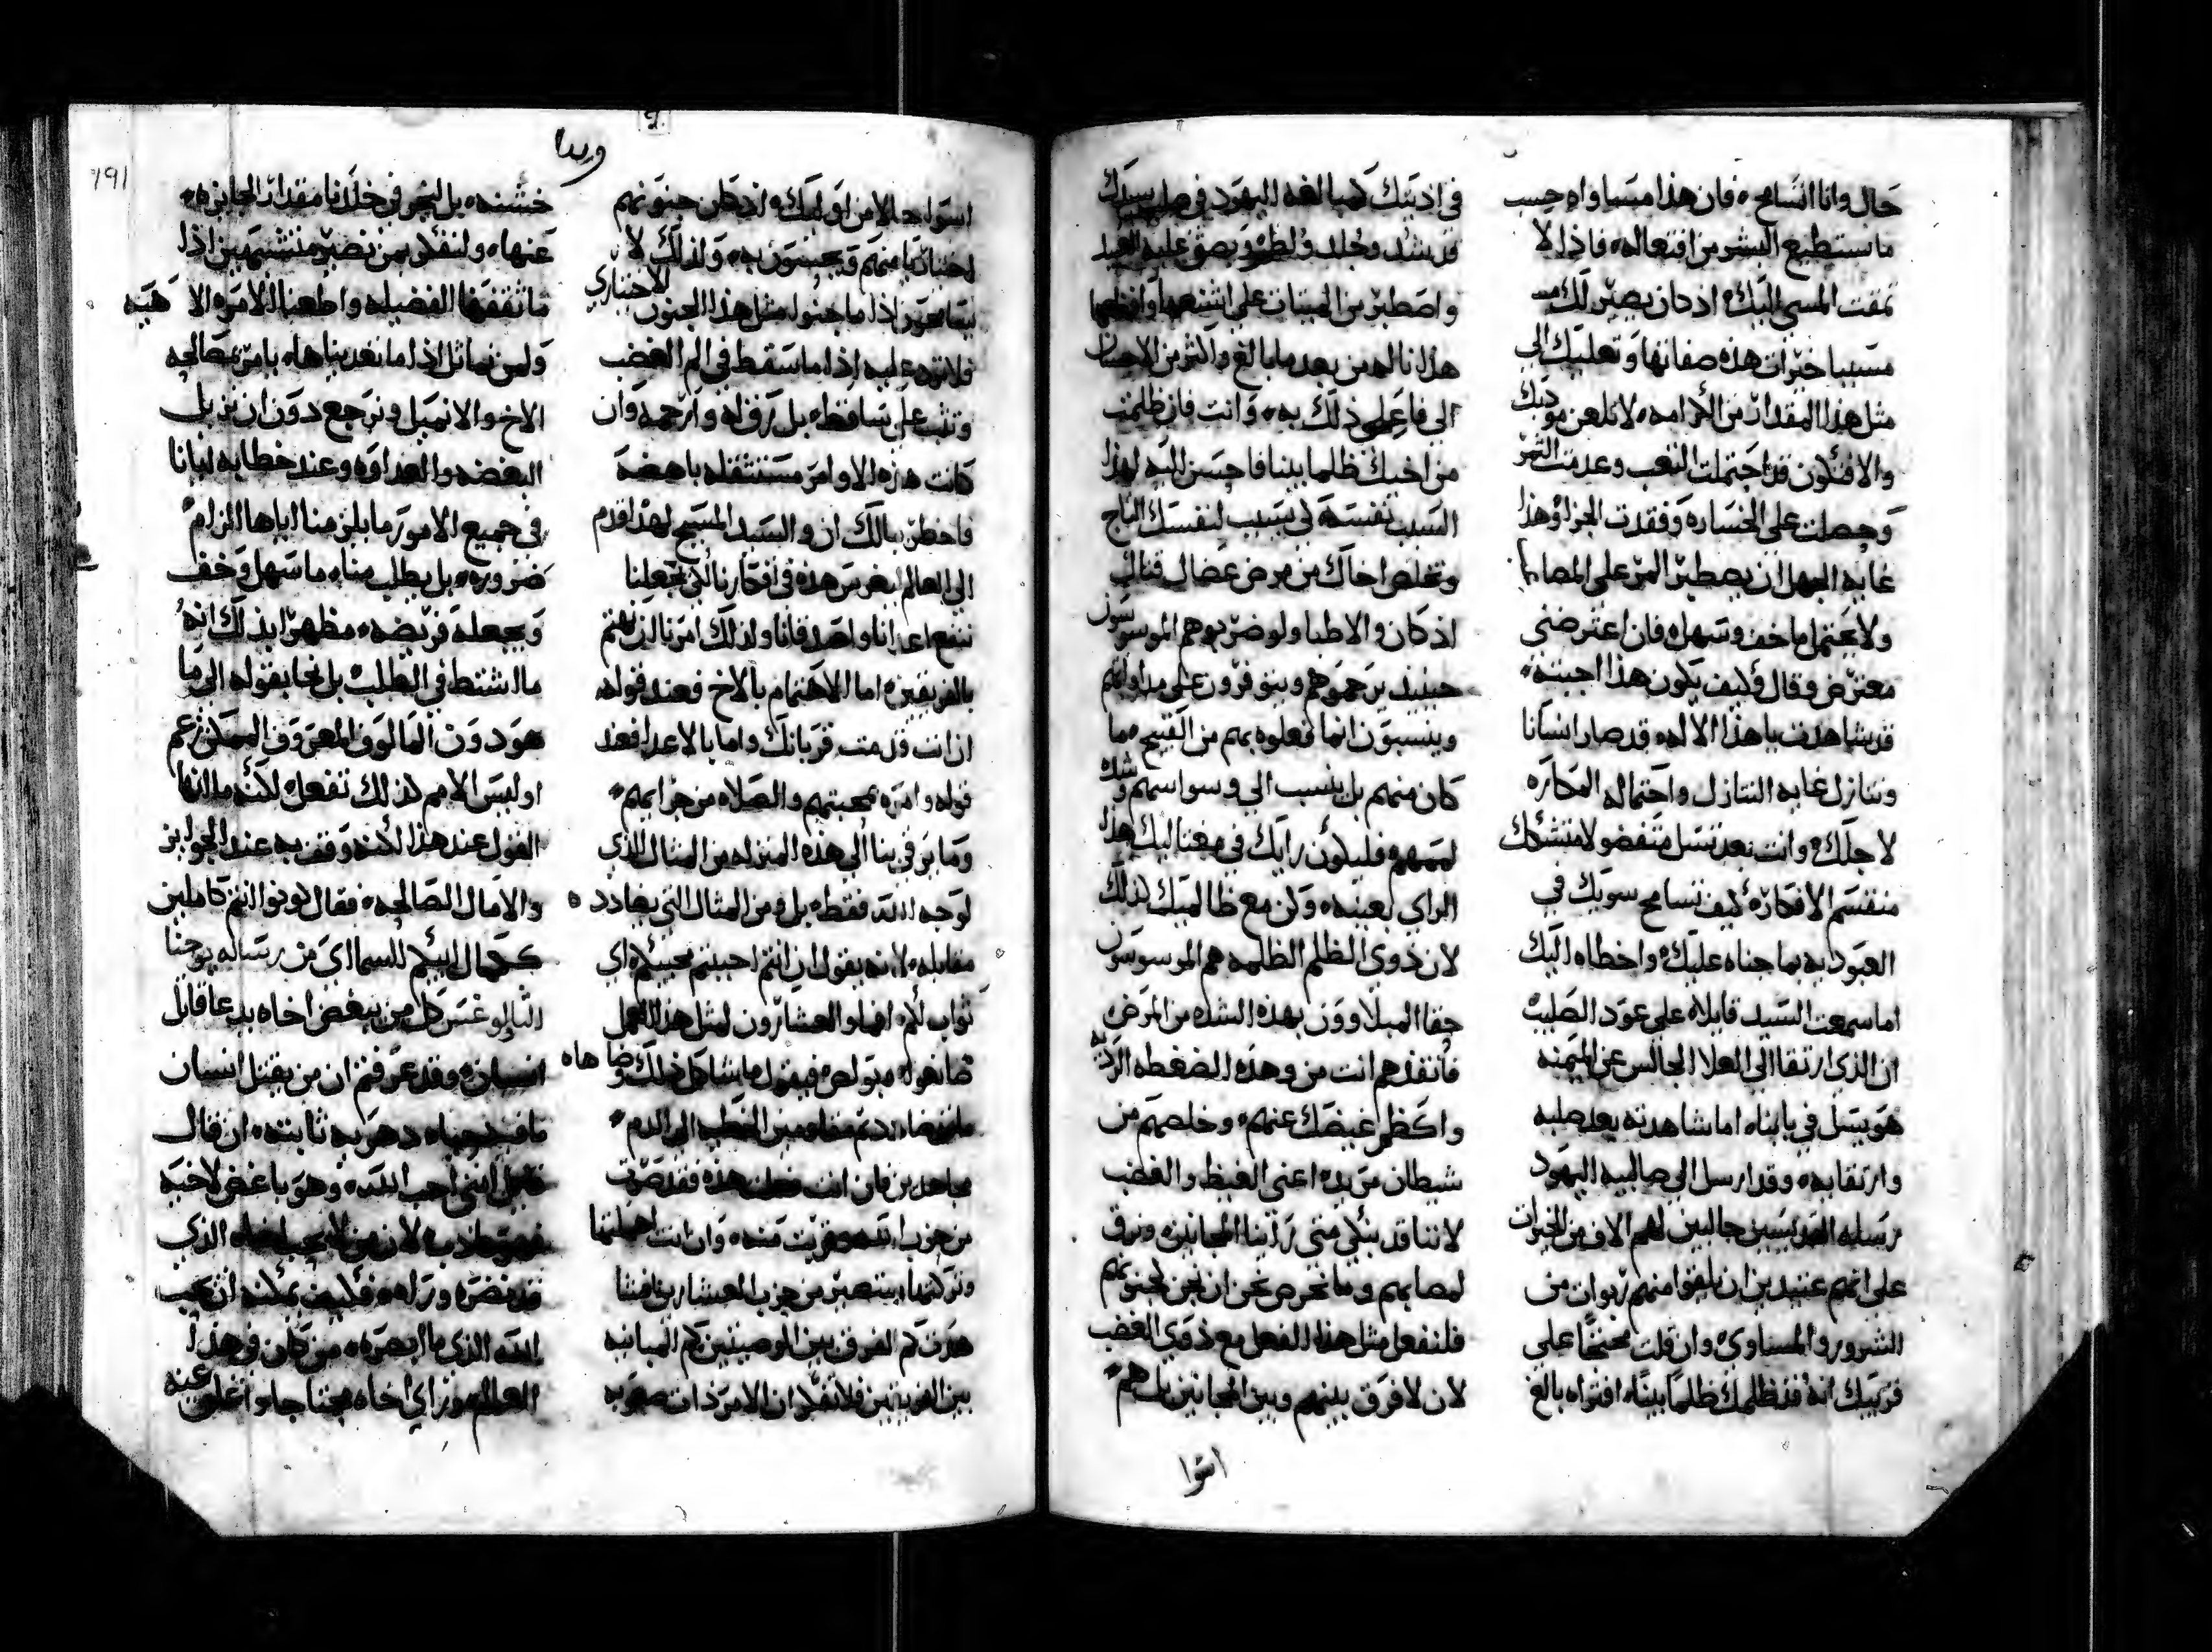 حال وانا اتسامح، فان هذا مساواه حسب
ما يستطيع البشر من افتعاله، فاذا لا
تمقت المسي اليك، اذ كان يصير لك
مسببا خيرات هذه صفاتها وتعليك الى
مثل هذا المقدار من الكرامه، لا تلعن موذيك
والا فتكون قد احتملت التعب وعدمت الثمر
وحصلت على الخساره وفقدت الجزا وهذا
غاية الجهل ان يصطبر المر على المصاعب
ولا يحتمل ما خف وسهل، فان اعترضني
معترض وقال وكيف يكون هذا، اجبته،
قد شاهدت يا هذا الاله، قد صار انسانا
وتنازل غاية التنازل واحتماله المكاره
لاجلك، وانت بعد تسل متفضولا متشكك
منقسم الافكار، كيف تسامح سويك في
العبوديه بما جناه عليك، واخطاه اليك
اما سمعت السيد قايلا، على عود الصليب
ان الذي ارتقا الى العلا الجالس عن الميمنه
هو يسل في يابناه، اما شاهدته بعد صلبه
وارتقايه، وقد ارسل الى صالبيه اليهود
رسله القديسين جالبين لهم الاف من الخيرات
على انهم عتيدين ان يلقوا منهم ربوات من
الشرور والمساوي، وان قلت محتجا على
قريبك انه قد ظلمك ظلما بينا، افتراه بالغ
في اذيتك كمبالغة اليهود في صلب سيدك
قد شد وجلد ولطم وبصق عليه العبد
واصطبر من الميتات على اشنعها وافظعها
هذا ناله من بعد ما بالغ واكثر من الاحسان
الى فاعلي ذلك به، وانت فان ظلمت
من اخيك ظلما بينا فاحسن اليه لهذا
السبب نفسه، لكي تسبب لنفسك التاج
وتخلص اخاك من مرض عضال قتال
اذ كان والاطبا ولو ضربوهم الموسوسون
حينيذ يرحموهم ويتوفرون على مداواتهم
وينسبون انما فعلوه بهم من القبيح، مما
كان منهم بل ينسب الى وسواسهم وشده
لممهم، فليكون رايك في مغتاليك هذا
الراي بعينه، وكن مع ظالميك كذلك
لان ذوي الظلم الظلمه هم الموسوسون
حقا المبلاوون بهذه الشده من المرض
فانقذهم انت من وهذه الضغطه الرديه
واكظم غيضك عنهم، وخلصهم من
شيطان مريد، اعني الغيظ والغضب
لاننا قد نبكي متى راينا المجانين، ونرق
لمصابهم وما نحرص نحن ان نجن لجنونهم
فلنفعل مثل هذا الفعل مع ذوي الغضب
لان لا فرق بينهم وبين المجانين بل هم
اشوا
191
اشوا حالا من اوليك، اذ كان جنونهم
اختياريا منهم ويحسون به، ولذلك لا
الاختياري
يسامحون اذا ما جنوا مثل هذا الجنون
فلا تهو عليه اذا ما سقط في الم الغضب
وتثب على ساقطه، بل رق له وارحمه وان
كانت هذه الاوامر مستثقله باهضه
فاحظر ببالك ان والسيد المسيح لهذا قدم
الى العالم ليغرس هذه في افكارنا لكي يجعلنا
ننفع اعدانا واصدقانا ولذلك امرنا ان نهتم
بالفريقين، اما الاهتمام بالاخ فعند قوله
ان انت قدمت قربانك، واما بالاعدا فعند
قوله وامره بمحبتهم والصلاه من جرايهم،
وما يرقينا الى هذه المنزله من المثال الذي
لوجه الله فقط، بل ومن المثال التي يضادده
مقابله، لانه يقول ان انتم احببتم محبيكم اي
ثواب لكم، افما والعشارون لمثل هذا العمل
بولص فيقول ما شاكل ذلك وضاهاه
الى الدم،
مجاهدين فان انت فعلت هذه فقد صرت
من حزب الله وقربت منه، وان انت اهملتها
وتركتها، ستصير من حزب العشارين افتنا
هدت كم الفرق بين الوصيتين، كم المباينه
بين الفريتين، فلا نفكر ان الامر ذات صعوبه
خشنه، بل لنجر في خلدنا مقدار الجايزه
عنها، ولنفكر بمن نصير متشبهين اذا
ما تثقفنا الفضيله واطعنا الاوامره الالاهيه
ولمن نماثل اذا ما تعديناها، يامر بمصالحه
الاخ والا نميل ونرجع دون ان نزيل
البغضه والعداوه، وعند خطابه ايانا
في جميع الامور ما يلزمنا اياها الزام
ضروره، بل يطلب مناه ما سهل وخف
ويجعله فريضه، مظهرا بذلك انه
ما اشتط في الطلب، بل نحا بقوله الى ما
هو دون المالوف المعروف الممكن زعم
اوليس الامم كذلك تفعل، لكنه ما انها
القول عند هذا لكنه وقف به عند الجوايز
والامال الصالحه، فقال كونوا انتم كاملين
ككمال ابيكم السمااي من رسالة يوحنا
الثاولوغس كل من يبغض اخاه يدعا قاتل
انسان، وقد عرفتم ان من يقتل انسان
ما فيه حياه دهريه ثابته، ان قال
قايل انني احب الله، وهو باغض لاخيه
فهو كاذب، لان من لا يحب اخاه الذي
قد نضره وراه، فكيف يمكنه ان يحب
الله الذي ما ابصره، من كان في هذا
العالم وراي اخاه محتاجا واغلق عنه